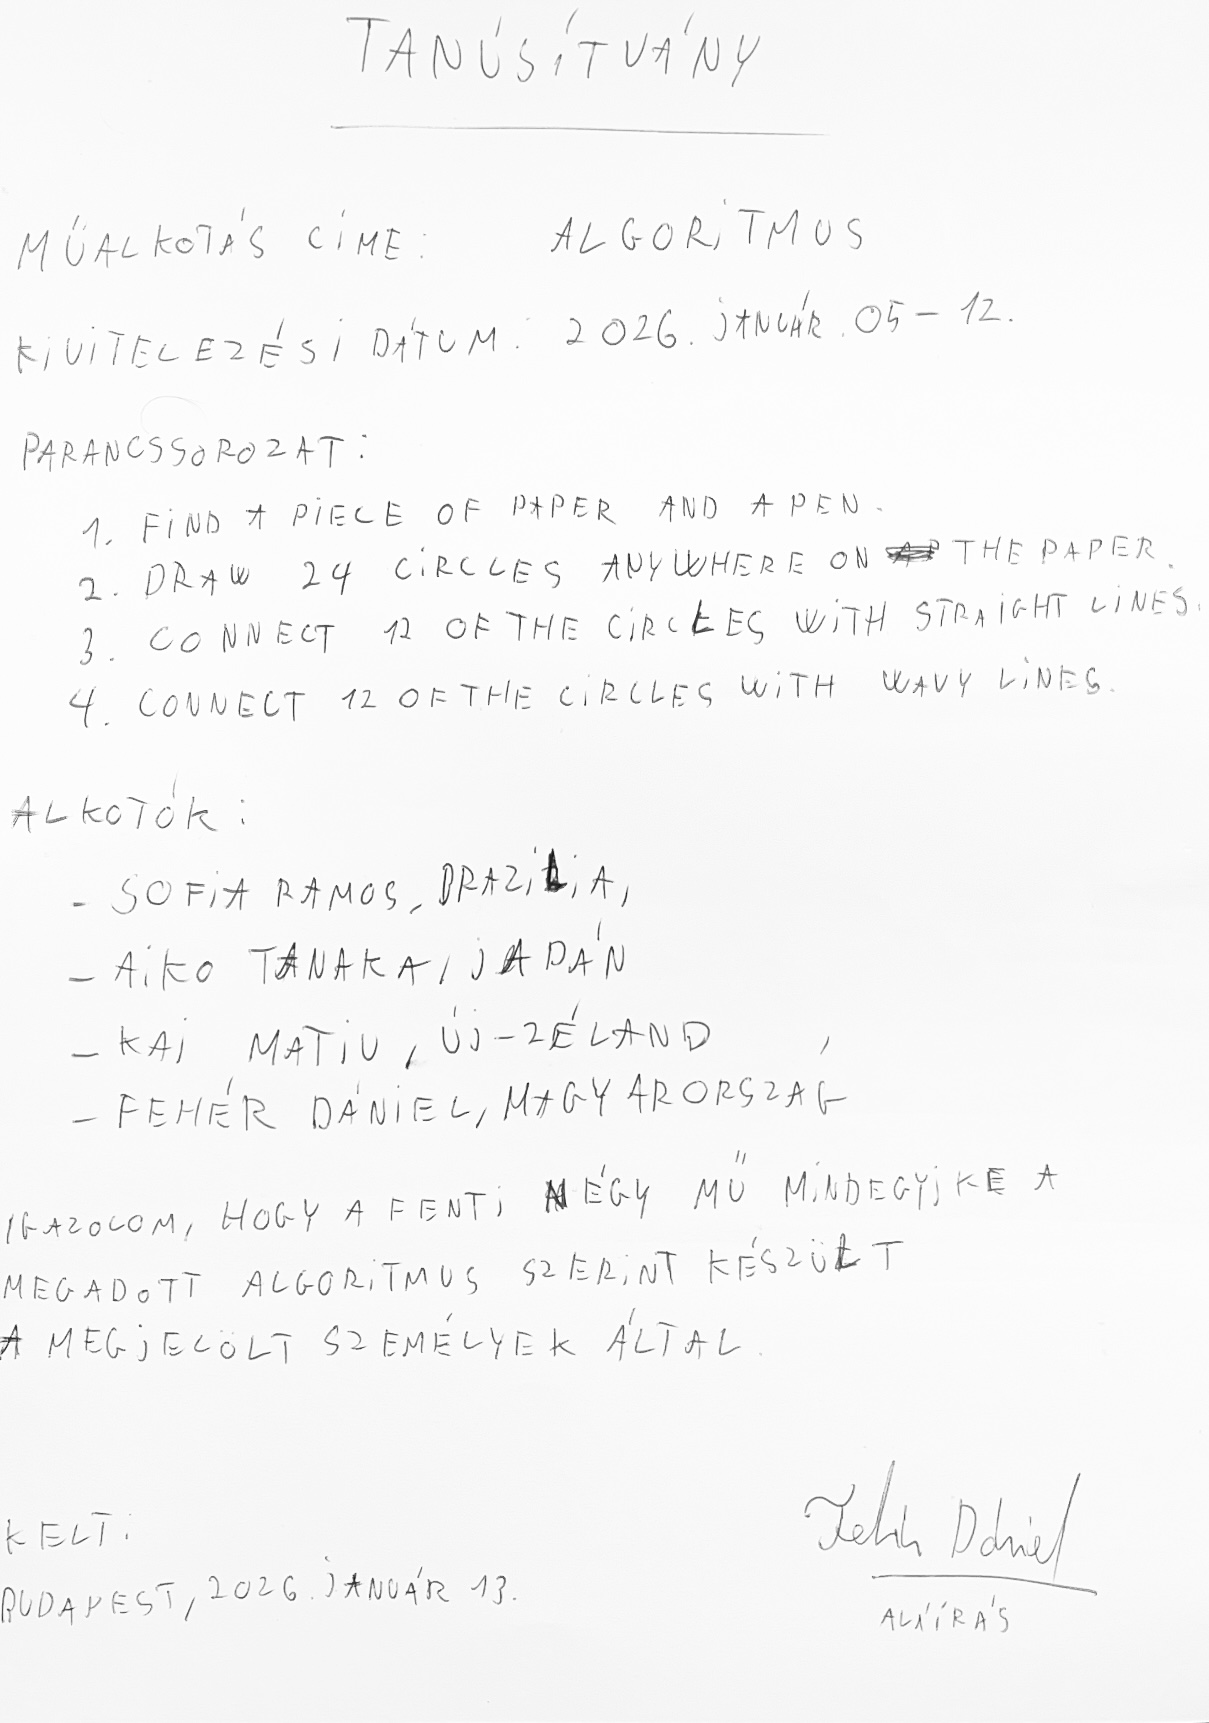 TANÚSÍTVÁNY
MŰALKOTÁS CÍME: ALGORITMUS
KIVITELEZÉSI DÁTUM: 2026. JANUÁR. 05-12.
PARANCSSOROZAT:
1. FIND A PIECE OF PAPER AND A PEN.
2. DRAW 24 CIRCLES ANYWHERE ON THE PAPER.
3. CONNECT 12 OF THE CIRCLES WITH STRAIGHT LINES.
4. CONNECT 12 OF THE CIRCLES WITH WAVY LINES.
ALKOTÓK:
- SOFIA RAMOS, BRAZILIA,
- AIKO TANAKA, JAPÁN
- KAI MATIU, ÚJ-ZÉLAND
- FEHÉR DÁNIEL, MAGYARORSZÁG
IGAZOLOM, HOGY A FENTI NÉGY MŰ MINDEGYIKE A
MEGADOTT ALGORITMUS SZERINT KÉSZÜLT
A MEGJELÖLT SZEMÉLYEK ÁLTAL.
KELT:
BUDAPEST, 2026. JANUÁR 13.
Fehér Dániel
ALÁÍRÁS